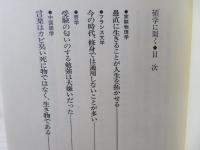 碩学に聞く◆目次
◆実験物理学
愚直に生きることが人生を拓かせる
◆フランス文学
今の時代、修身では通用しないことが多い
◆哲学
受験の匂いのする勉強は大嫌いだった
◆中国語学
言葉はカビ臭い死に物ではなく、生き物である